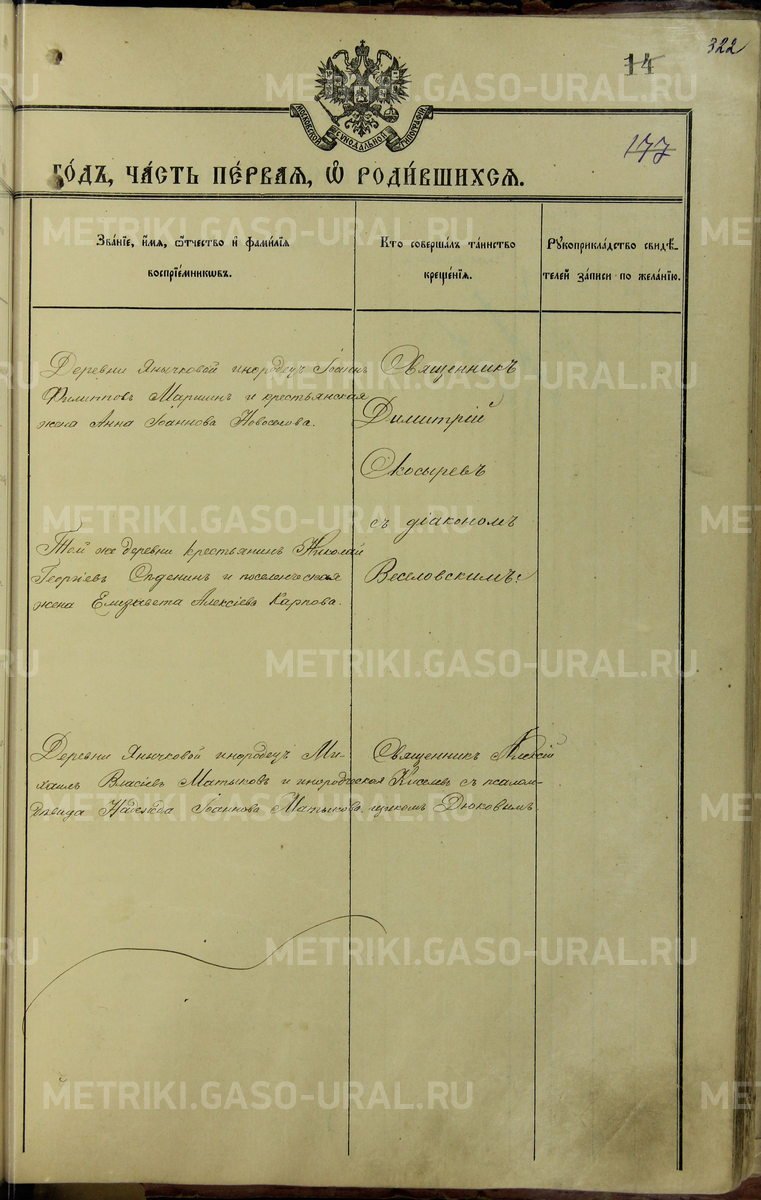 322
14
177
МОСКОВСКОЙ СѴНОДАЛЬНОЙ ТИПОГРАФІИ
ГО́ДЪ, ЧА́СТЬ ПЕ́РВАЯ, Ѽ РОДИ́ВШИХСЯ.
Зва́нїе, и҆́мя, ѻ҆́тчество и҆ фами́лїя
воспрїе́мникѡвъ.
Кто соверша́лъ та́инство
креще́нїя.
Рукоприкла́дство свидѣ́-
телей за́писи по жела́нїю.
Деревни Янычковой инородецъ Іоаннъ
Филипповъ Маршин и крестьянская
жена Анна Іоаннова Новоселова.
Священникъ
Димитрій
Скосыревъ
съ діакономъ
Веселовскимъ.
Той же деревни крестьянинъ Николай
Георгіевъ и поселенческая
жена Елизавета Алексіева Карпова.
Деревни Янычковой инородецъ Ми-
хаилъ Власіевъ Матыковъ и инородческая
дѣвица Надежда Іоаннова Матыкова.
Священникъ Алексій
Киселевъ съ псалом-
щикомъ Дюковымъ.
METRIKI.GASO-URAL.RU